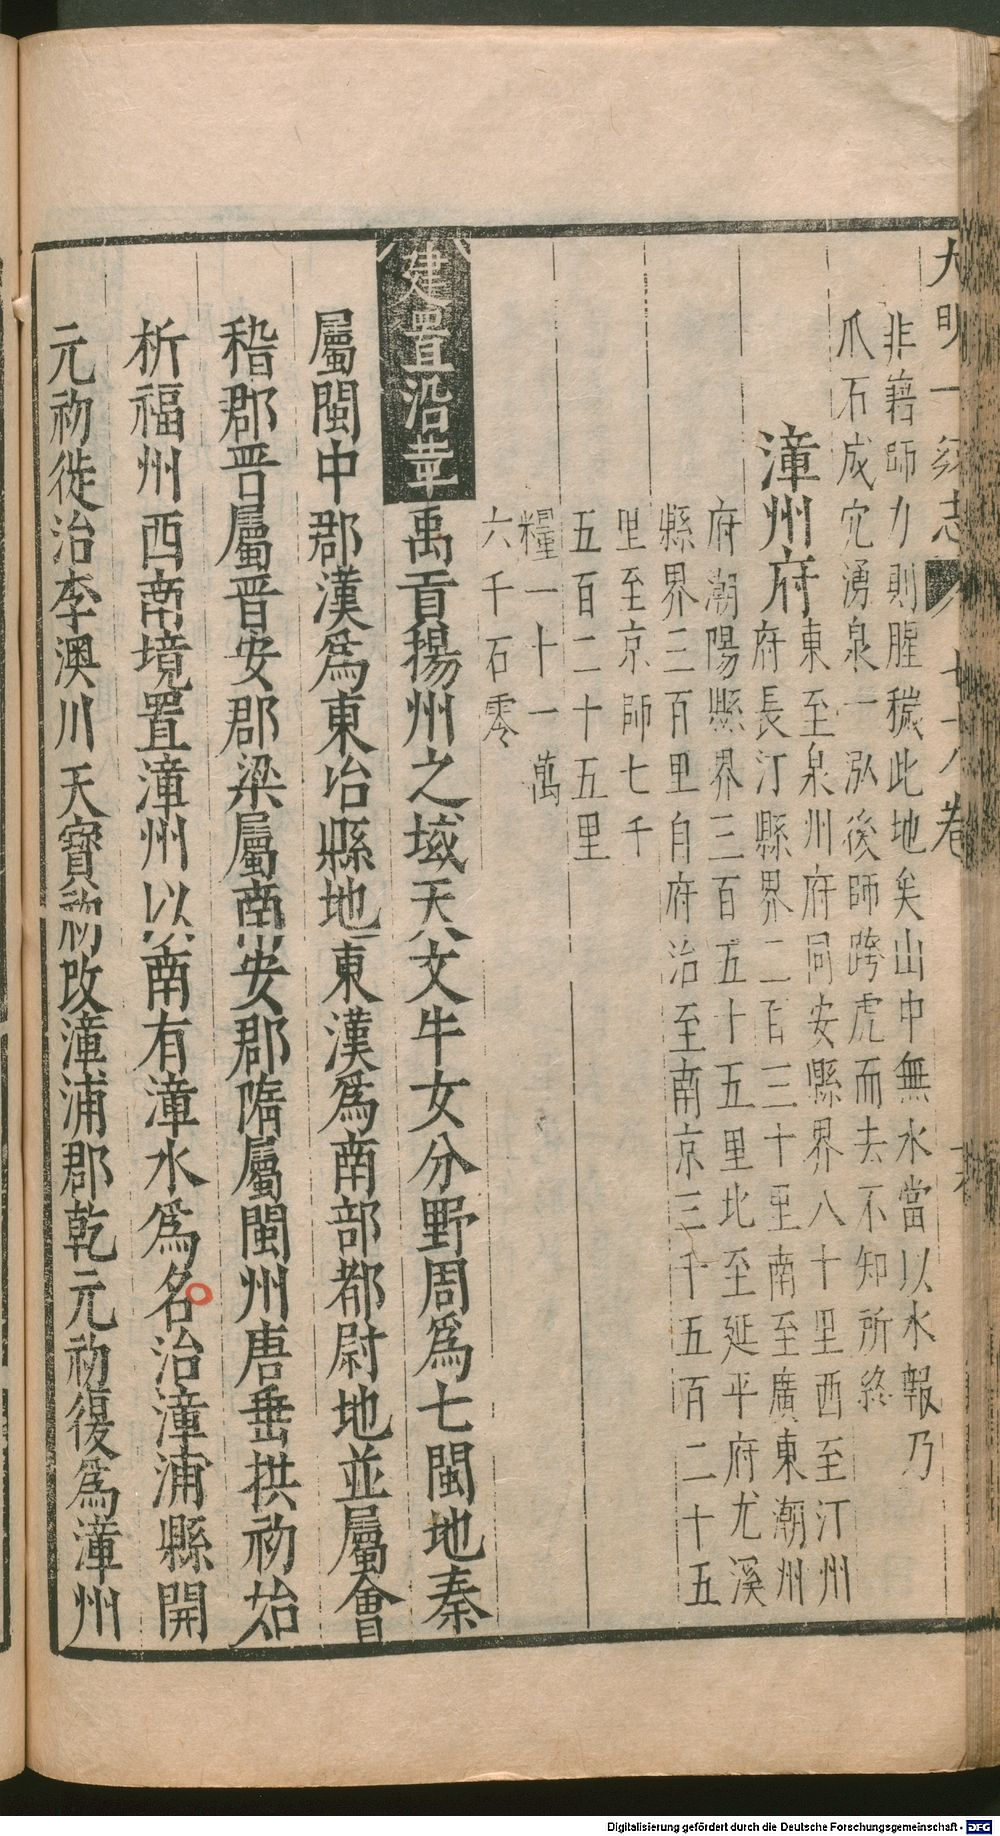 大明一統志 七十八卷
非藉師力則腥穢此地矣山中無水當以水報乃
爪石成穴湧泉一泓後師跨虎而去不知所終
漳州府 東至泉州府同安縣界八十里西至汀州
府長汀縣界二百三十里南至廣東潮州
府潮陽縣界三百五十五里北至延平府尤溪
縣界三百里自府治至南京三千五百二十五
里至京師七千
五百二十五里
糧一十一萬
六千石零
建置沿革 禹貢揚州之域天文牛女分野周爲七閩地秦
屬閩中郡漢爲東冶縣地東漢爲南部都尉地並屬會
稽郡晉屬晉安郡梁屬南安郡隋屬閩州唐垂拱初始
析福州西南境置漳州以南有漳水爲名治漳浦縣開
元初徙治李澳川天寶初改漳浦郡乾元初復爲漳州
Digitalisierung gefördert durch die Deutsche Forschungsgemeinschaft - DFG